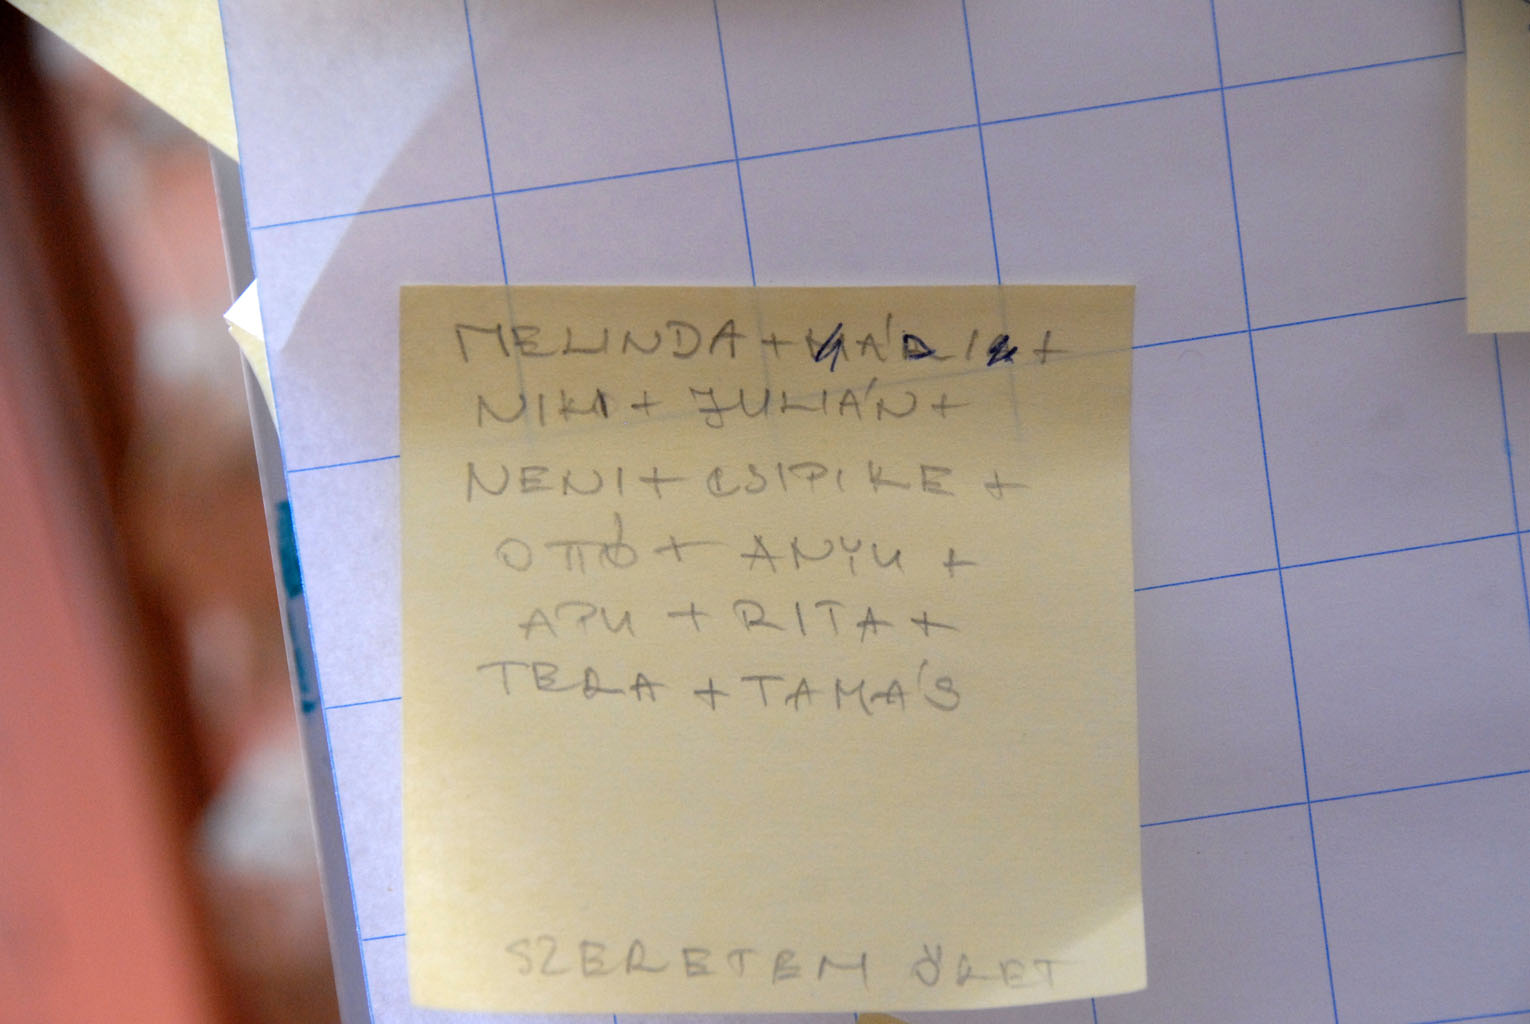 MELINDA + +
NIKI + JULIÁN +
NENI + CSIPIKE +
OTTÓ + ANYU +
APU + RITA +
TERA + TAMÁS
SZERETEM ŐKET